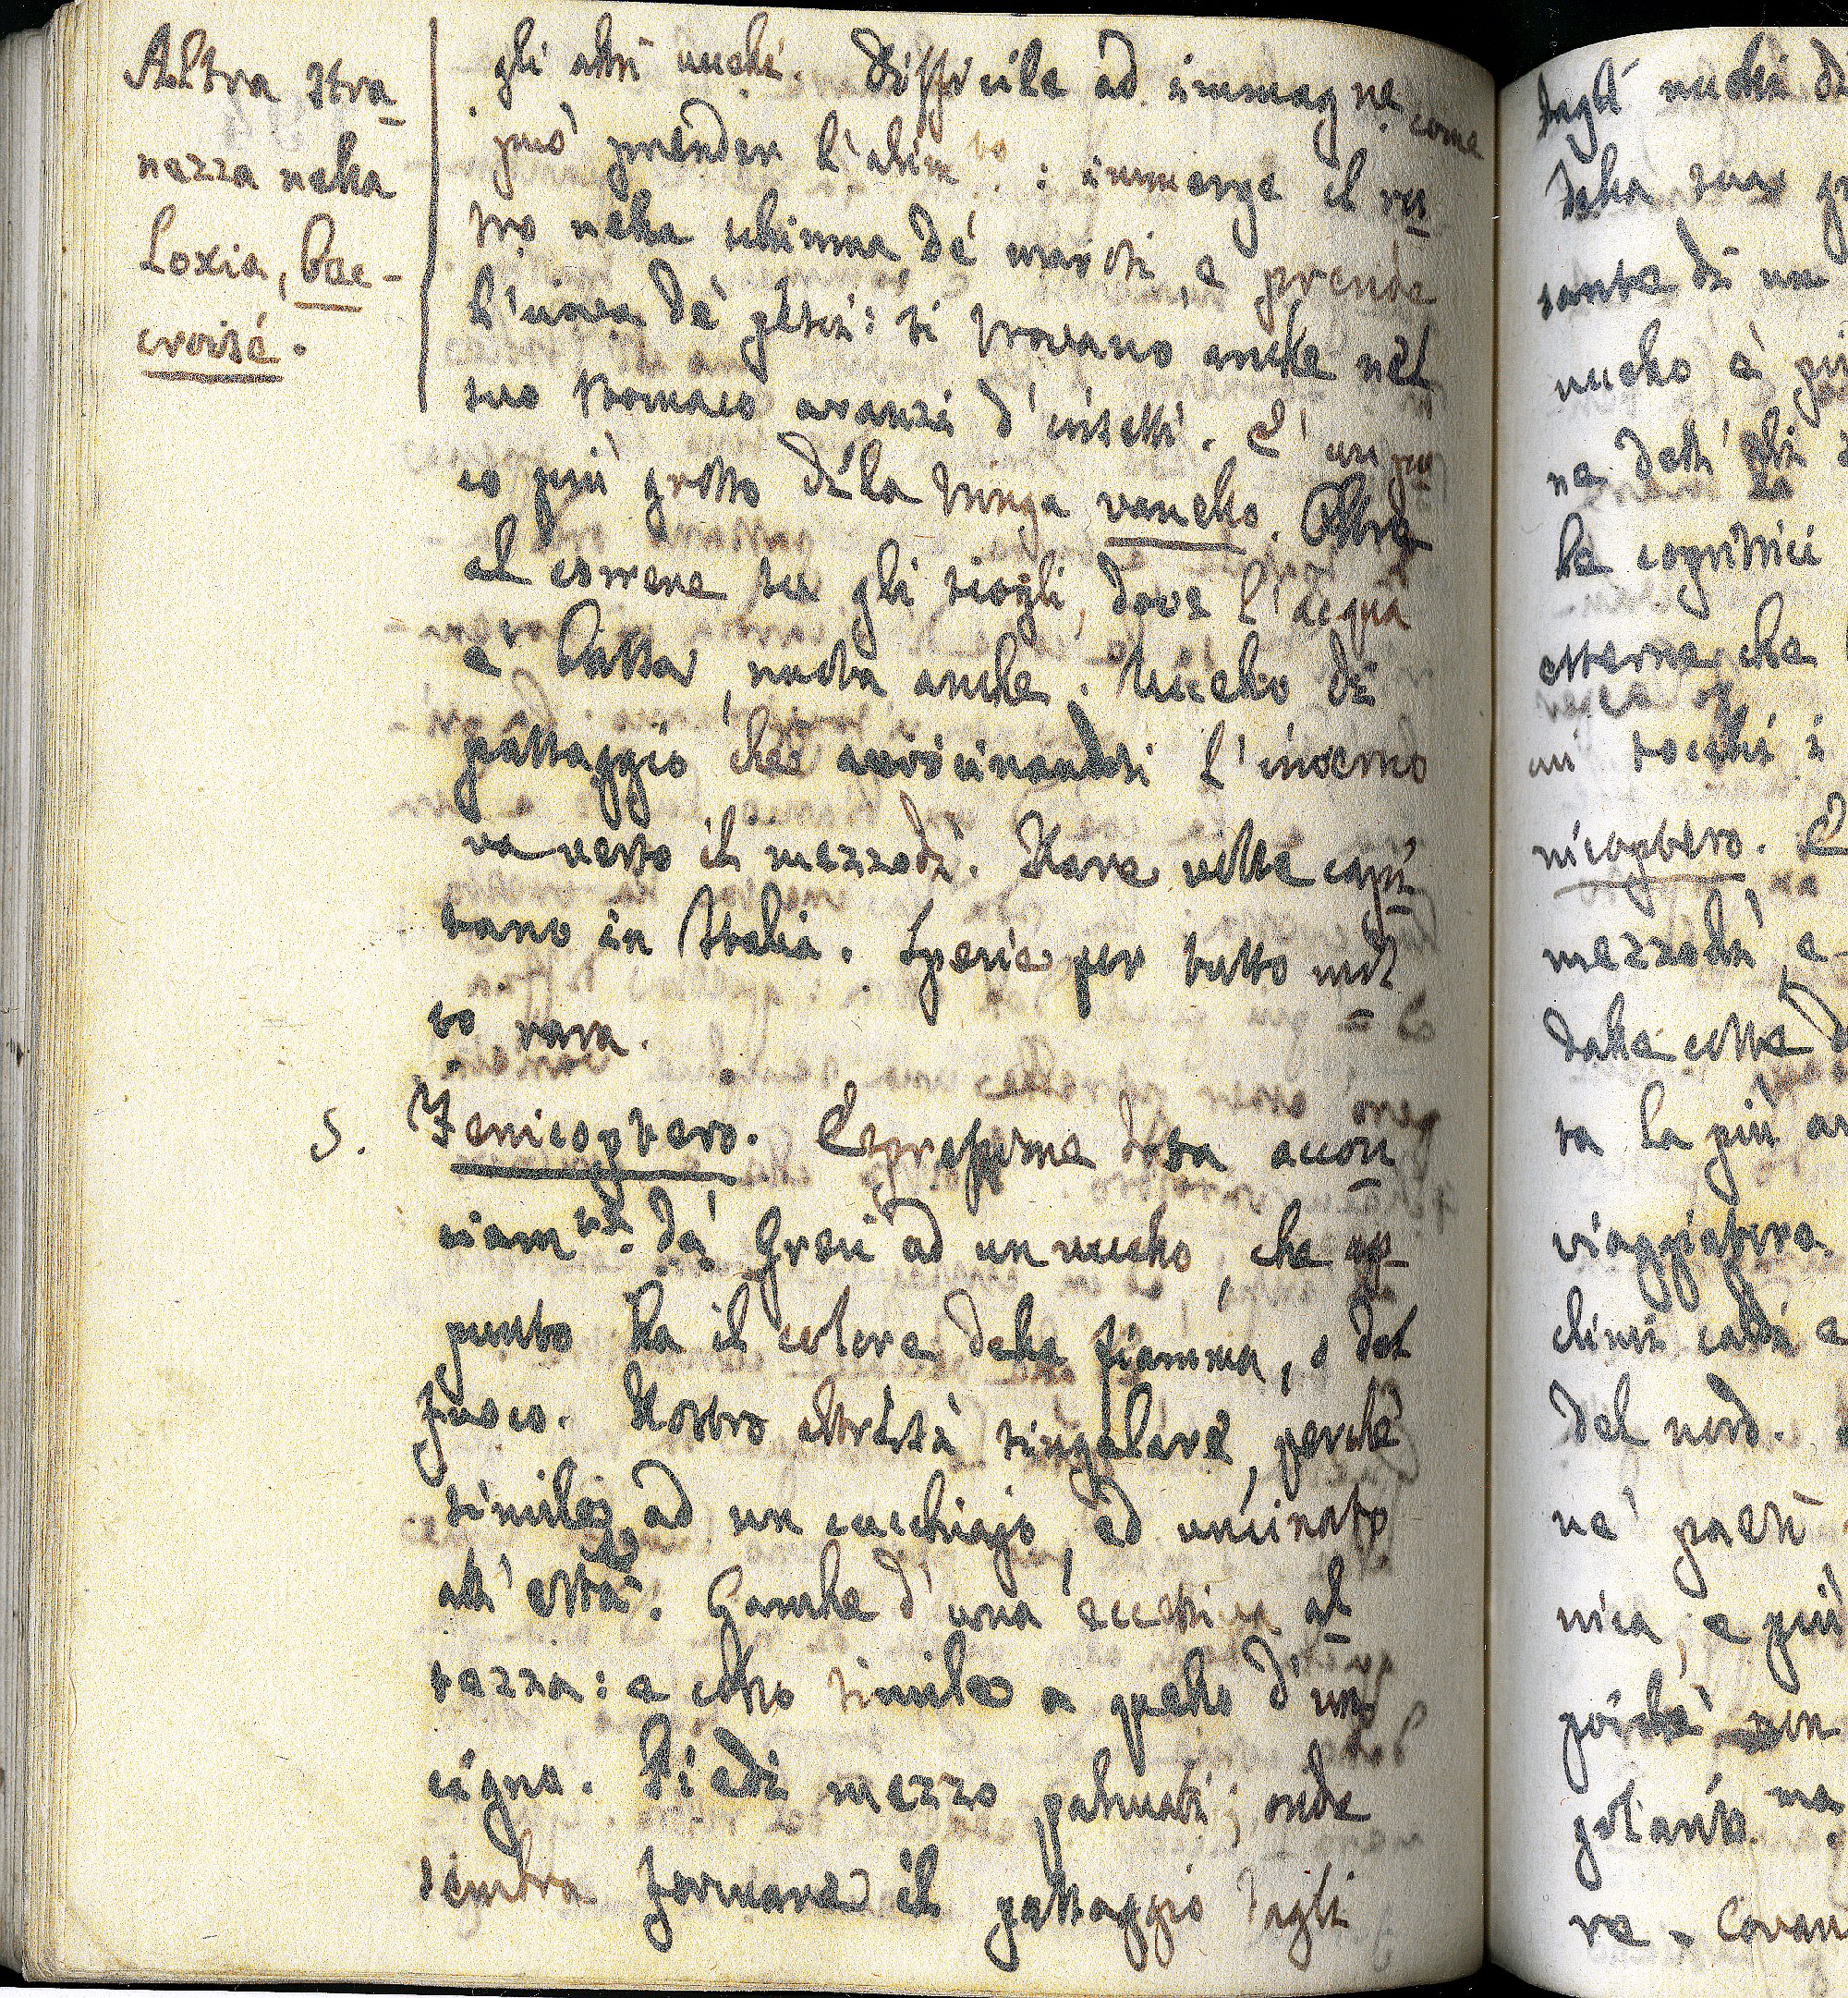 Altra stra-
nezza nella
Loxia, bec-
croisé.
gli altri uccelli. Difficile ad immag.ne come
può prender l'alim.to: immerge il ros-
tro nella schiuma de' marosi, e prende
l'uova de' pesci: si trovano anche nel
suo stomaco avanzi d'insetti. E' un po-
co più grosso della tringa vanello. Oltre
al correre su gli scogli, dove l'acqua
è bassa, nuota anche. Uccello di
passaggio che avvicinandosi l'inverno
va verso il mezzodì. Rare volte capi-
tano in Italia. Specie per tutto mol-
to rara.
5. Fenicoptero. Espressione data accon-
ciam.te da' Greci ad un uccello, che ap-
punto ha il colore della fiamma, o del
fuoco. Rostro altresì singolare, perchè
simile ad un cucchiajo, ed uncinato
all'està. Gambe d'una eccessiva al-
tezza: e collo simile a quello d'un
cigno. Piedi mezzo palmati; onde
sembra formare il passaggio dagli
dagli uccelli di
della sua gr
sante di un
uccello è più
ne dell'ali
le copritrici
esterne che
un' occhi i
nicoptero. È
mezzodì, e
dalle coste d
ta la più
viaggiatore.
climi caldi e
del nord.
ne' paesi
nica, e più
poichè non
golante. ma
re. Covan